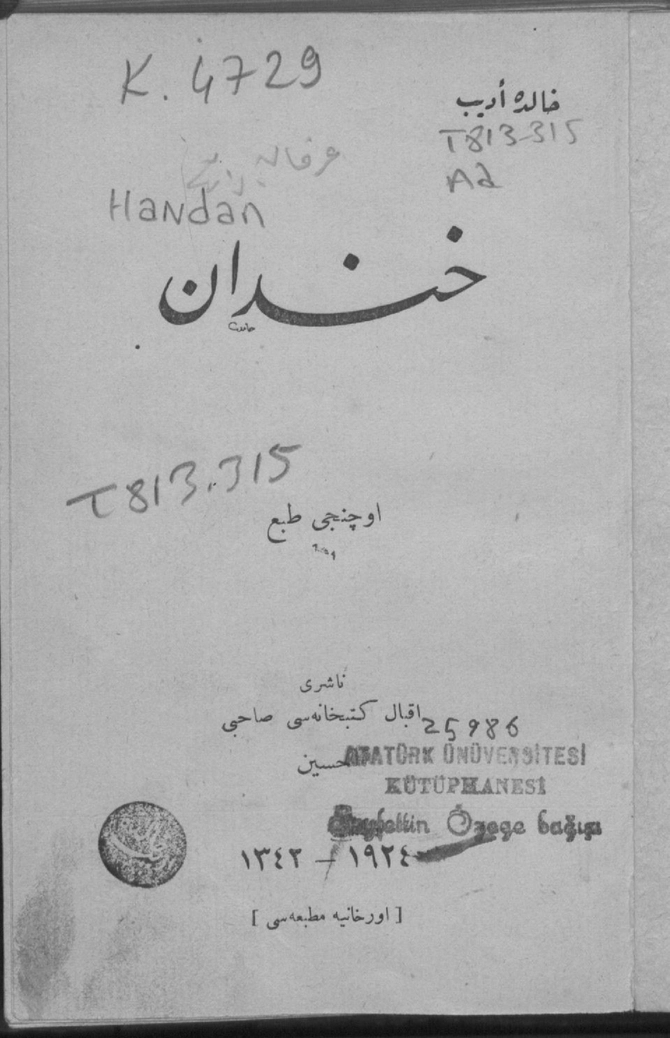 K. 4729
خالده أديب
T813-315
Ad
Handan
خندان
T813.315
اوچنجی طبع
ناشری
اقبال کتبخانه‌سی صاحبی
25986
حسین
ATATÜRK ÜNÜVERSİTESİ
KÜTÜPHANESİ
Seyfettin Özege bağışı
١٣٤٢ — ١٩٢٤
[ اورخانیه مطبعه‌سی ]